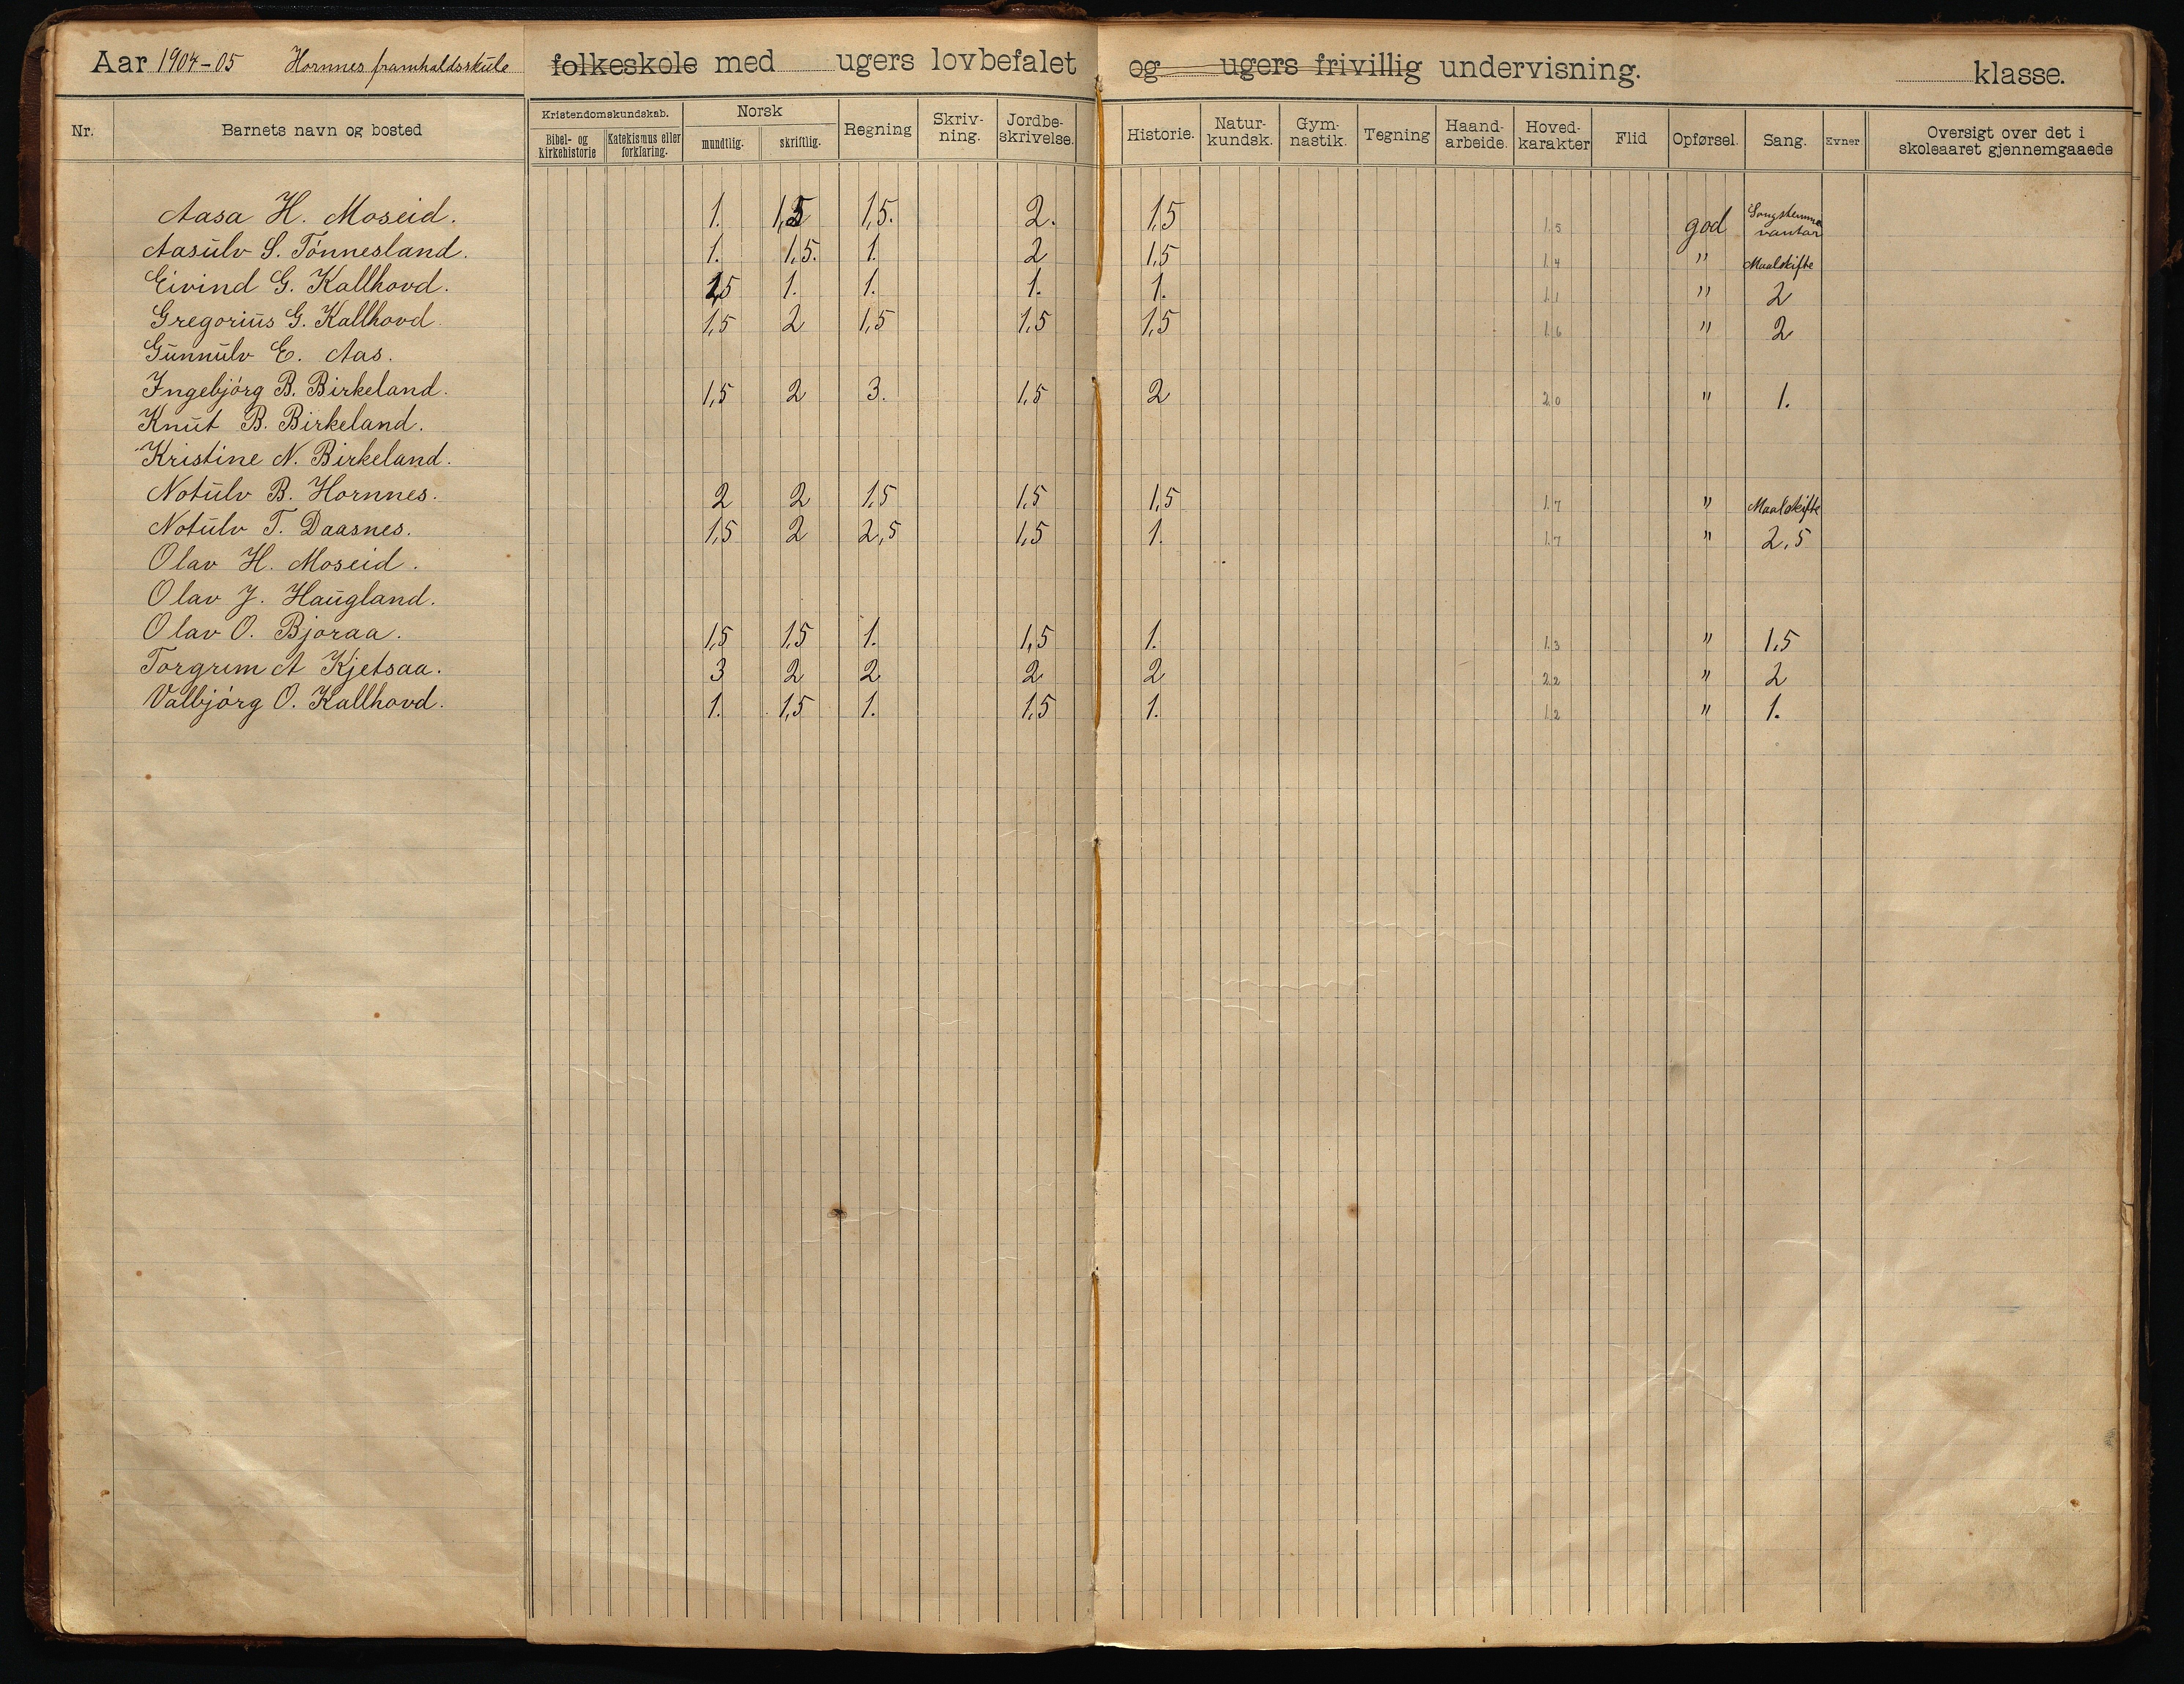 Aar 1904-05 Hornnes framhaldsskule folkeskole med ugers lovbefalet og ugers frivillig undervisning. klasse.
Nr. Barnets navn og bosted Kristendomskundskab. Bibel- og kirkehistorie Katekismus eller forklaring. Norsk mundtlig. skriftlig. Regning Skriv-ning. Jordbe-skrivelse. Historie. Natur-kundsk. Gym-nastik. Tegning Haand-arbeide. Hoved-karakter Flid Opførsel. Sang. Evner Oversigt over det i skoleaaret gjennemgaaede
Aasa H. Moseid. 1. 1,5 1,5. 2. 1,5 1,5 god Songstemma vantar
Aasulv S. Tónnesland. 1. 1,5. 1. 2 1,5 1,4 " Maalskifte
Eivind G. Kallhovd. 1,5 1. 1. 1. 1. 1,1 " 2
Gregorius G. Kallhovd. 1,5 2 1,5 1,5 1,5 1,6 " 2
Gunnulv E. Aas.
Ingebjórg B. Birkeland. 1,5 2 3. 1,5 2 2,0 " 1.
Knut B. Birkeland.
Kristine N. Birkeland.
Notulv B. Hornnes. 2 2 1,5 1,5 1,5 1,7 " Maalskifte
Notulv T. Daasnes. 1,5 2 2,5 1,5 1. 1,7 " 2,5
Olav H. Moseid.
Olav J. Haugland.
Olav O. Bjoraa. 1,5 1,5 1. 1,5 1. 1,3 " 1,5
Torgrim A Kjetsaa. 3 2 2 2 2 2,2 " 2
Valbjórg O. Kallhovd. 1. 1,5 1. 1,5 1. 1,2 " 1.